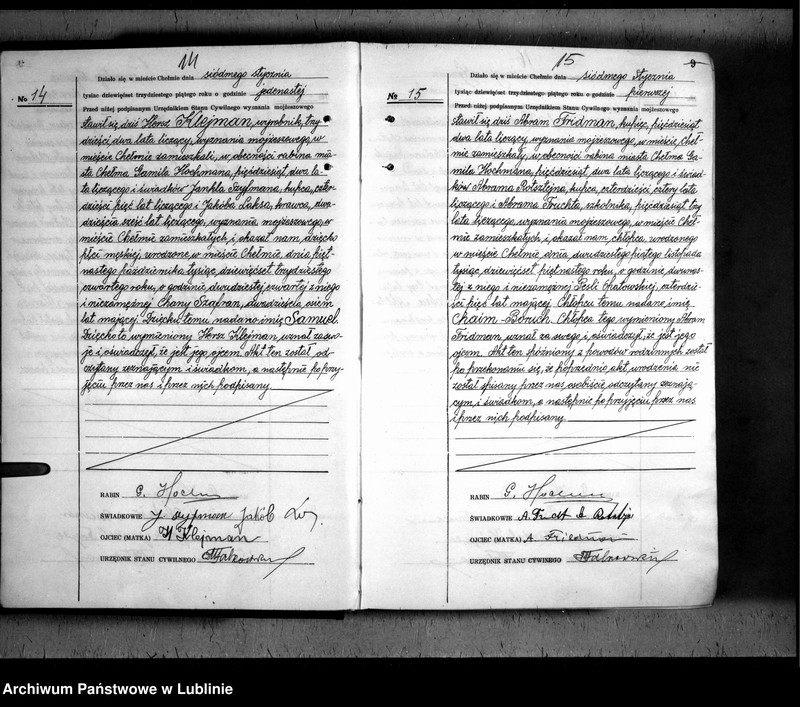 14
No 14
Działo się w mieście Chełmie dnia siódmego stycznia
tysiąc dziewięćset trzydziestego piątego roku o godzinie jedenastej
Przed niżej podpisanym Urzędnikiem Stanu Cywilnego wyznania mojżeszowego
stawił się dziś Hersz Klejman, wyrobnik, trzy-
dzieści dwa lata liczący, wyznania mojżeszowego, w
mieście Chełmie zamieszkały, w obecności rabina mia-
sta Chełma Gamila Hochmana, pięćdziesiąt dwa la-
ta liczącego i świadków Jankla Szyfmana, kupca, czter-
dzieści pięć lat liczącego i Jakóba Laksa, krawca, dwa-
dzieścia sześć lat liczącego, wyznania mojżeszowego, w
mieście Chełmie zamieszkałych, i okazał nam, dziecko
płci męskiej, urodzone w mieście Chełmie, dnia pięt-
nastego października tysiąc dziewięćset trzydziestego
czwartego roku, o godzinie, dwudziestej czwartej z niego
i niezamężnej Chany Szafran, dwadzieścia osiem
lat mającej. Dziecku temu nadano imię Samuel.
Dziecko to wymieniony Hersz Klejman, uznał za swo-
je i oświadczył, że jest jego ojcem. Akt ten został od-
czytany zeznającym i świadkom, a następnie po przy-
jęciu przez nas i przez nich podpisany.
RABIN G.
ŚWIADKOWIE J. Szyfman Jakób
OJCIEC (MATKA) H Klejman
URZĘDNIK STANU CYWILNEGO
15
9
No 15
Działo się w mieście Chełmie dnia siódmego Stycznia
tysiąc dziewięćset trzydziestego piątego roku o godzinie pierwszej
Przed niżej podpisanym Urzędnikiem Stanu Cywilnego wyznania mojżeszowego
stawił się dziś Abram Fridman, kupiec, pięćdziesiąt
dwa lata liczący, wyznania mojżeszowego, w mieście Cheł-
mie zamieszkały, w obecności rabina miasta Chełma Ga-
mila Hochmana, pięćdziesiąt, dwa lata liczącego i świad-
ków Abrama Rotsztejna, kupca, czterdzieści, cztery lata
liczącego i Abrama Fruchta, szkolnika, pięćdziesiąt trzy
lata liczącego, wyznania mojżeszowego, w mieście Cheł-
mie zamieszkałych, i okazał nam, chłopca, urodzonego
w mieście Chełmie, dnia, dwudziestego piątego listopada
tysiąc dziewięćset piętnastego roku, o godzinie dwunas-
tej z niego i niezamężnej Perli Opatowskiej, czterdzie-
ści pięć lat mającej. Chłopcu temu nadano imię
Chaim-Boruch. Chłopca tego wymieniony Abram
Fridman, uznał za swego i oświadczył, że jest jego
ojcem. Akt ten spóźniony z powodów rodzinnych został
po przekonaniu się, że poprzednio akt urodzenia nie
został spisany przez nas osobiście odczytany zeznają-
cym i świadkom, a następnie po przyjęciu przez nas
i przez nich podpisany.
RABIN G.
ŚWIADKOWIE A. Frucht A
OJCIEC (MATKA) A.
URZĘDNIK STANU CYWINEGO
Archiwum Państwowe w Lublinie